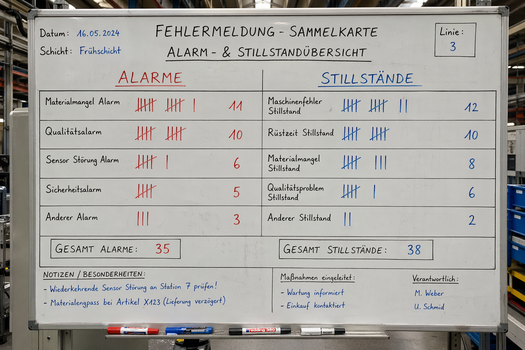 Datum: 16.05.2024
Schicht: Frühschicht
FEHLERMELDUNG - SAMMELKARTE
ALARM - & STILLSTANDÜBERSICHT
Linie:
3
ALARME
Materialmangel Alarm 11
Qualitätsalarm 10
Sensor Störung Alarm 6
Sicherheitsalarm 5
Anderer Alarm 3
GESAMT ALARME: 35
STILLSTÄNDE
Maschinenfehler
Stillstand 12
Rüstzeit Stillstand 10
Materialmangel
Stillstand 8
Qualitätsproblem
Stillstand 6
Anderer Stillstand 2
GESAMT STILLSTÄNDE: 38
NOTIZEN / BESONDERHEITEN:
- Wiederkehrende Sensor Störung an Station 7 prüfen!
- Materialengpass bei Artikel X123 (Lieferung verzögert)
Maßnahmen eingeleitet:
- Wartung informiert
- Einkauf kontaktiert
Verantwortlich:
M. Weber
U. Schmid